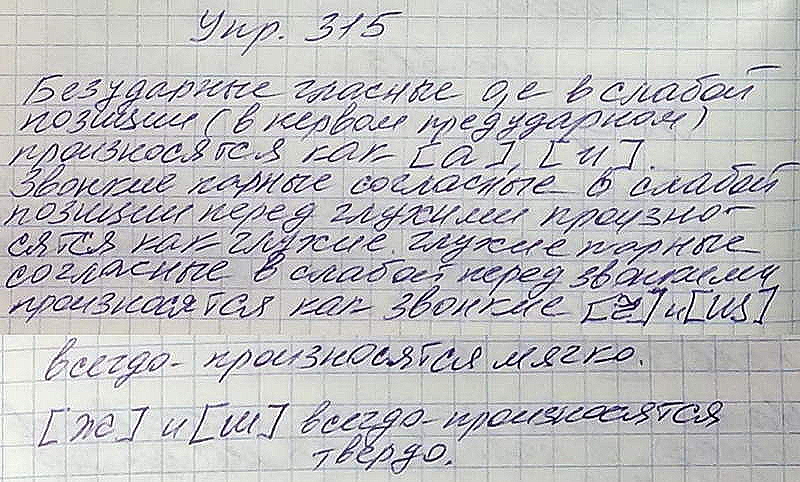 Упр. 315
Безударные гласные о, е в слабой
позиции (в первом предударном)
произносятся как [а], [и].
Звонкие парные согласные в слабой
позиции перед глухими произно-
сятся как глухие. глухие парные
согласные в слабой перед звонкими
произносятся как звонкие [ч] и [щ]
всегдо - произносятся мягко.
[ж] и [ш] всегдо - произносятся
твердо.